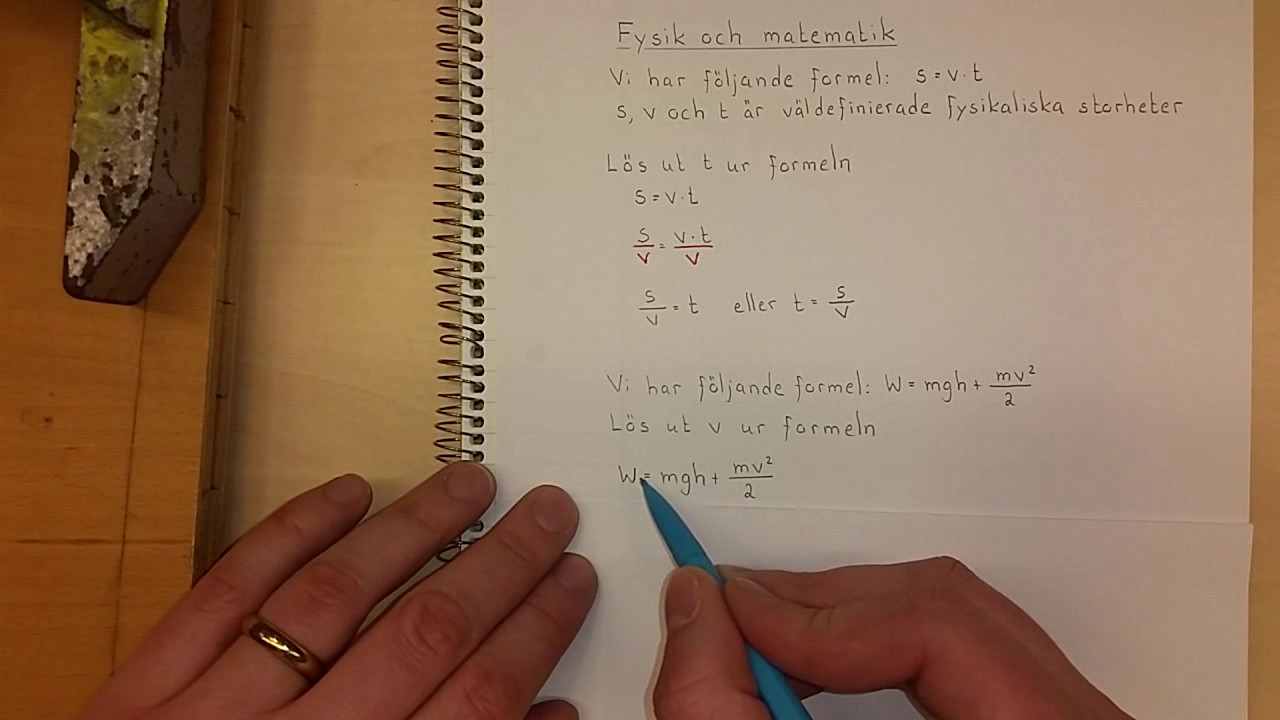 Fysik och matematik
Vi har följande formel: s = v · t
s, v och t är väldefinierade fysikaliska storheter
Lös ut t ur formeln
s = v · t
s/v = v · t/v
s/v = t eller t = s/v
Vi har följande formel: W = mgh + mv²/2
Lös ut v ur formeln
W = mgh + mv²/2